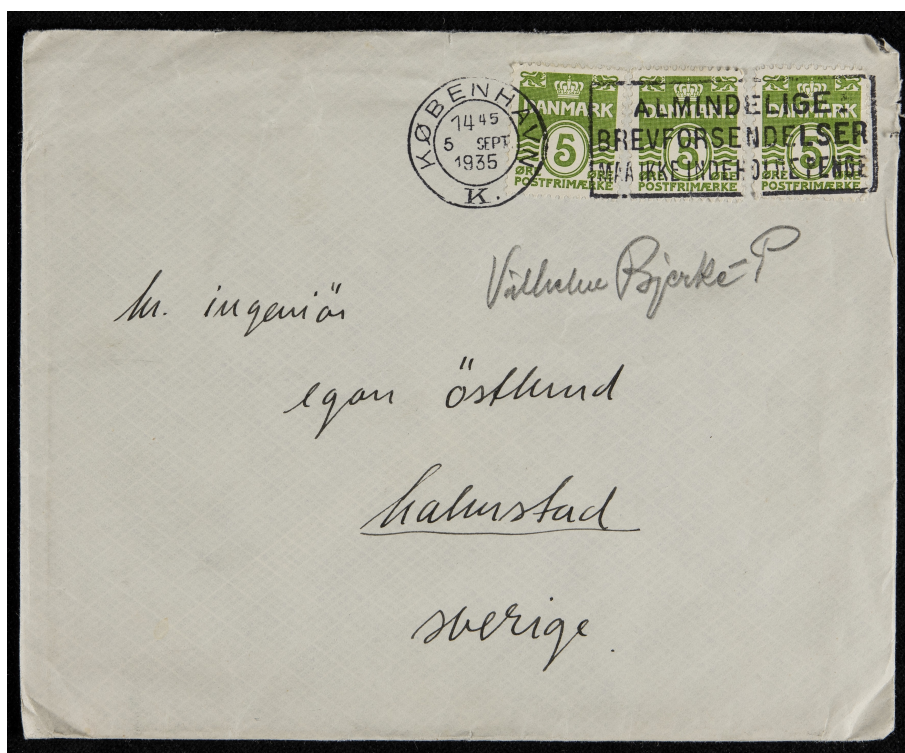 KØBENHAVN
14 45
5 SEPT.
1935
K.
DANMARK
5
ØRE ØRE
POSTFRIMÆRKE
DANMARK
5
ØRE ØRE
POSTFRIMÆRKE
DANMARK
5
ØRE ØRE
POSTFRIMÆRKE
ALMINDELIGE
BREVFORSENDELSER
MAA IKKE INDEHOLDE PENGE
Vilhelm Bjerke-P
hr. ingeniör
egon östlund
halmstad
sverige.